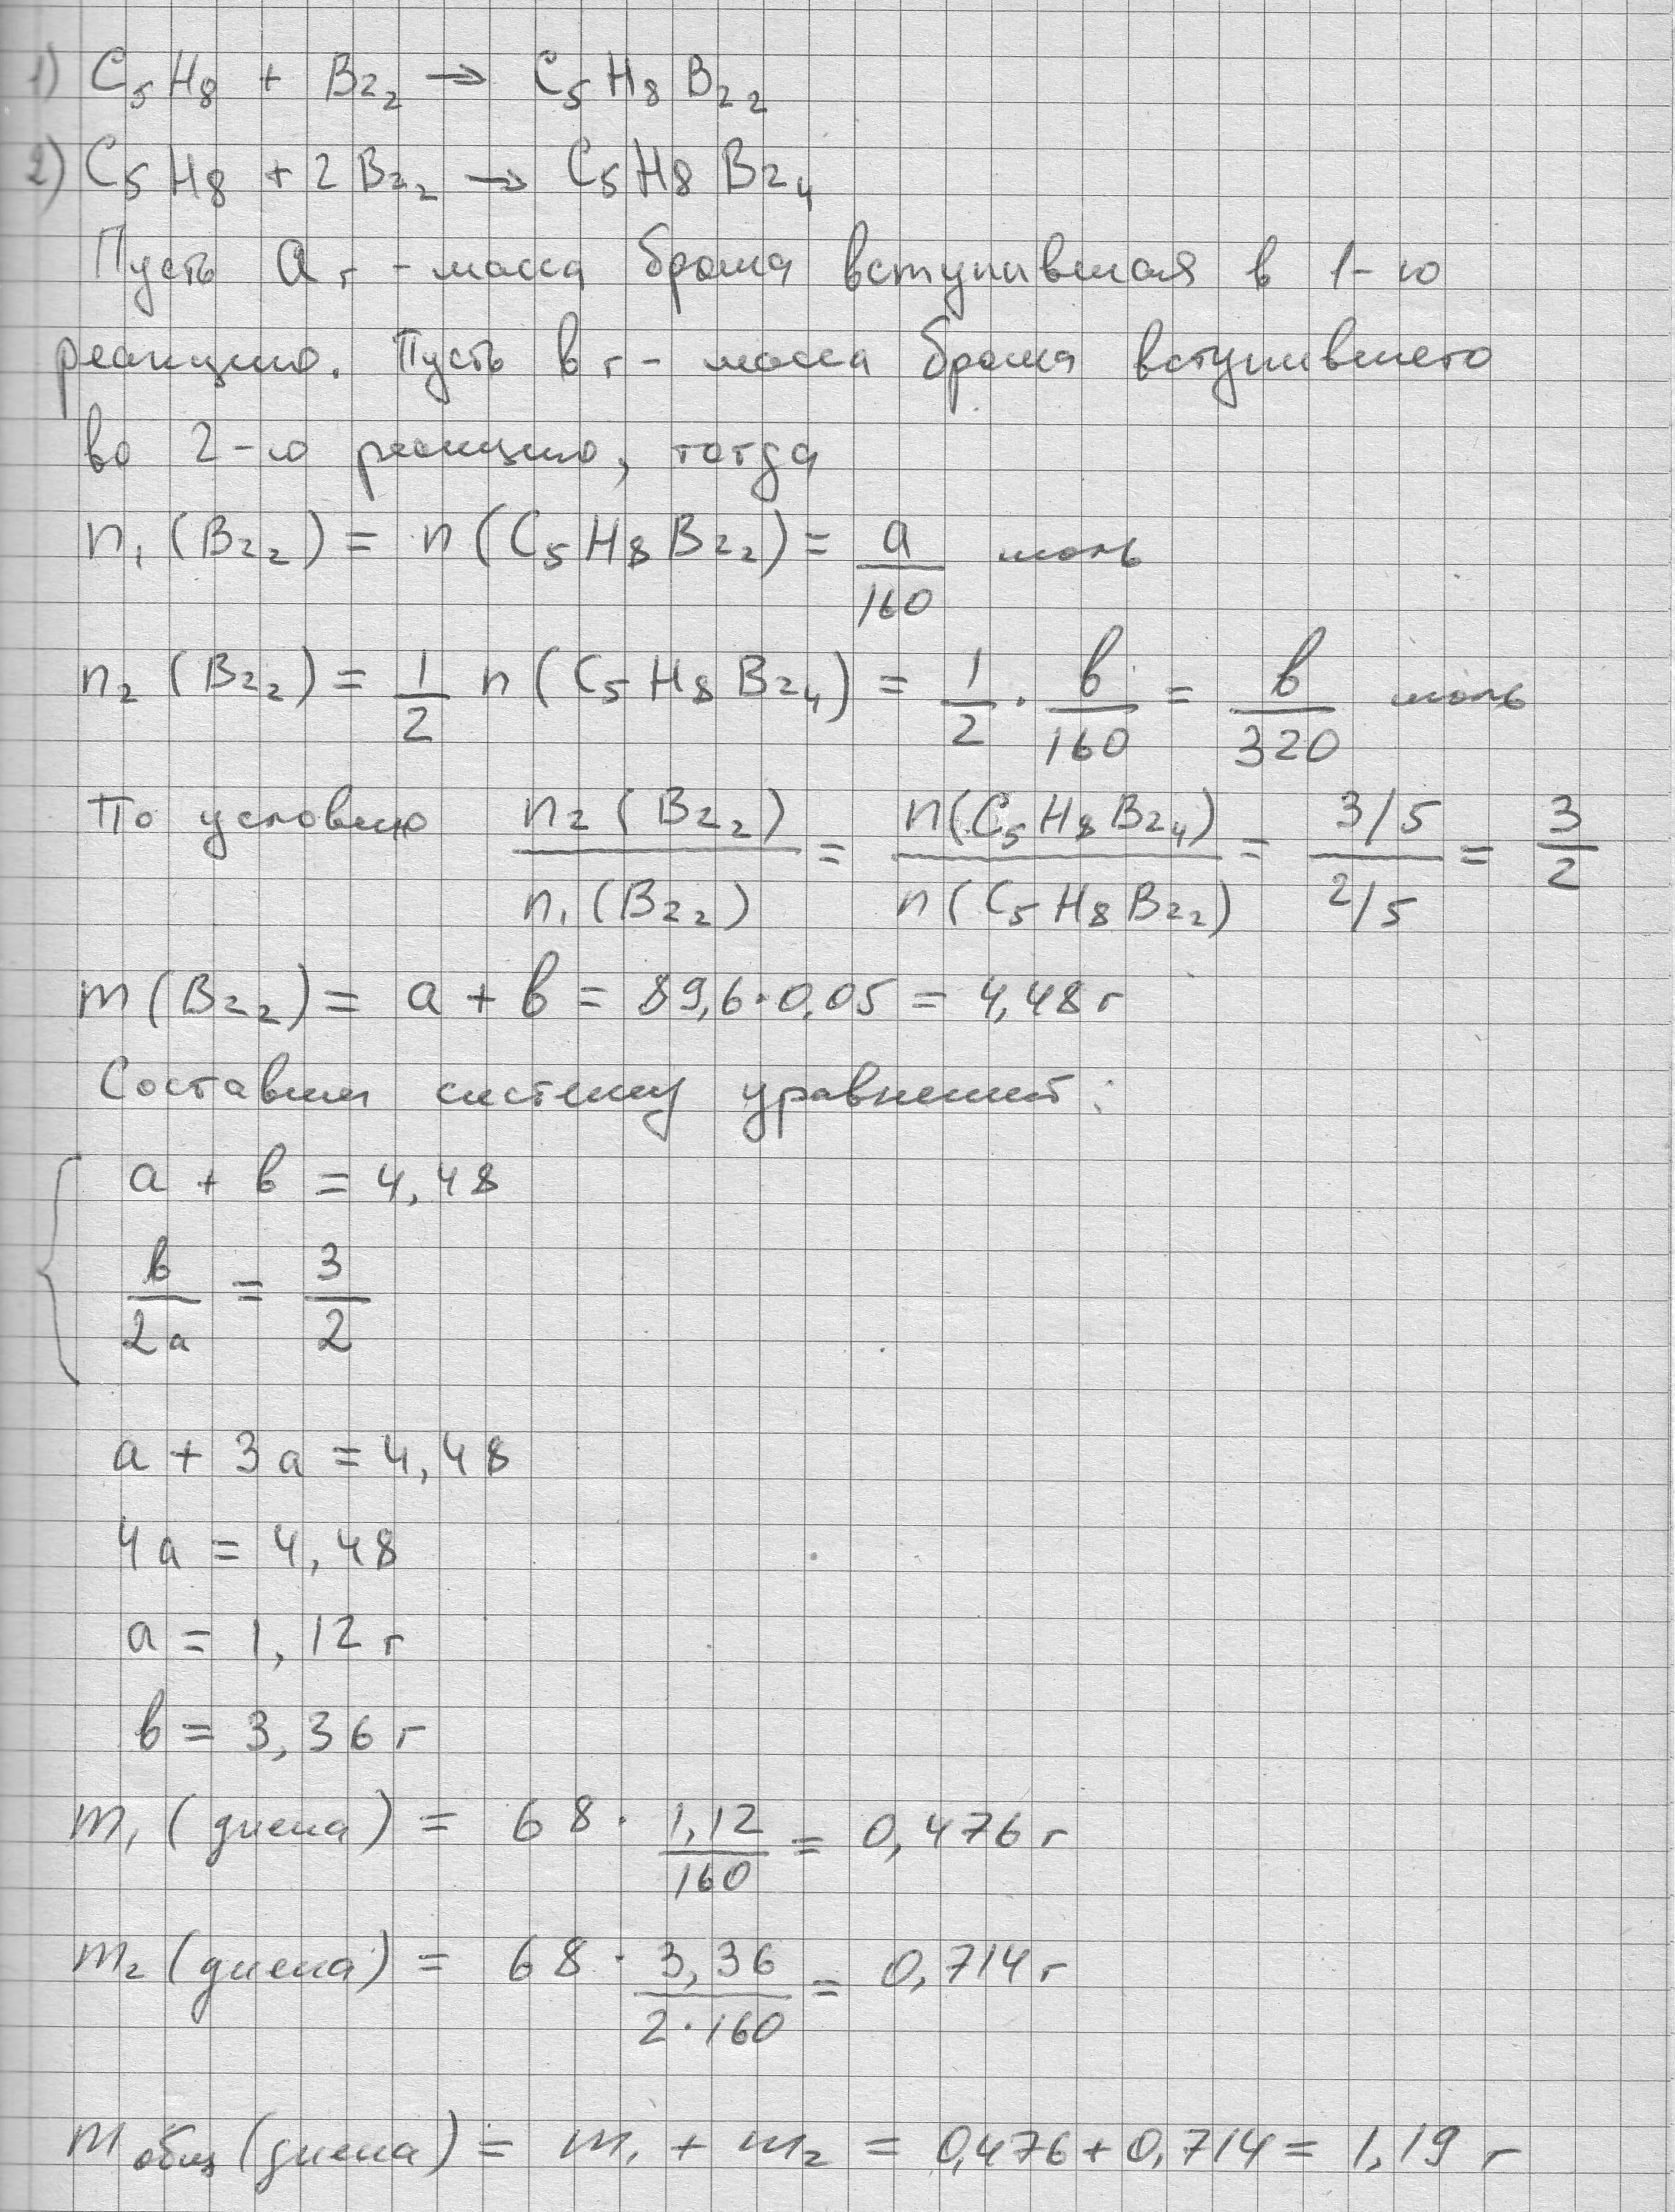 1) C₅H₈ + Br₂ → C₅H₈Br₂
2) C₅H₈ + 2Br₂ → C₅H₈Br₄
Пусть a г - масса брома вступившая в 1-ю
реакцию. Пусть в г - масса брома вступившего
во 2-ю реакцию, тогда
n₁(Br₂) = n(C₅H₈Br₂) = a/160 моль
n₂(Br₂) = 1/2 n(C₅H₈Br₄) = 1/2 · в/160 = в/320 моль
По условию n₂(Br₂)/n₁(Br₂) = n(C₅H₈Br₄)/n(C₅H₈Br₂) = (3/5)/(2/5) = 3/2
m(Br₂) = a + в = 89,6·0,05 = 4,48 г
Составим систему уравнений:
a + в = 4,48
в/2a = 3/2
a + 3a = 4,48
4a = 4,48
a = 1,12 г
в = 3,36 г
m₁(диена) = 68 · 1,12/160 = 0,476 г
m₂(диена) = 68 · 3,36/(2·160) = 0,714 г
m общ(диена) = m₁ + m₂ = 0,476 + 0,714 = 1,19 г